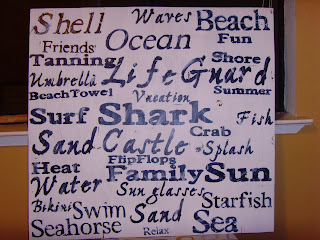 Shell Waves Beach
Friends Ocean Fun
Tanning Life Guard Shore
Umbrella Summer
BeachTowel Vacation
Surf Shark Fish
Sand Castle Crab
FlipFlops Splash
Heat Family Sun
Water Sunglasses
Bikini Swim Sand Starfish
Seahorse Relax Sea